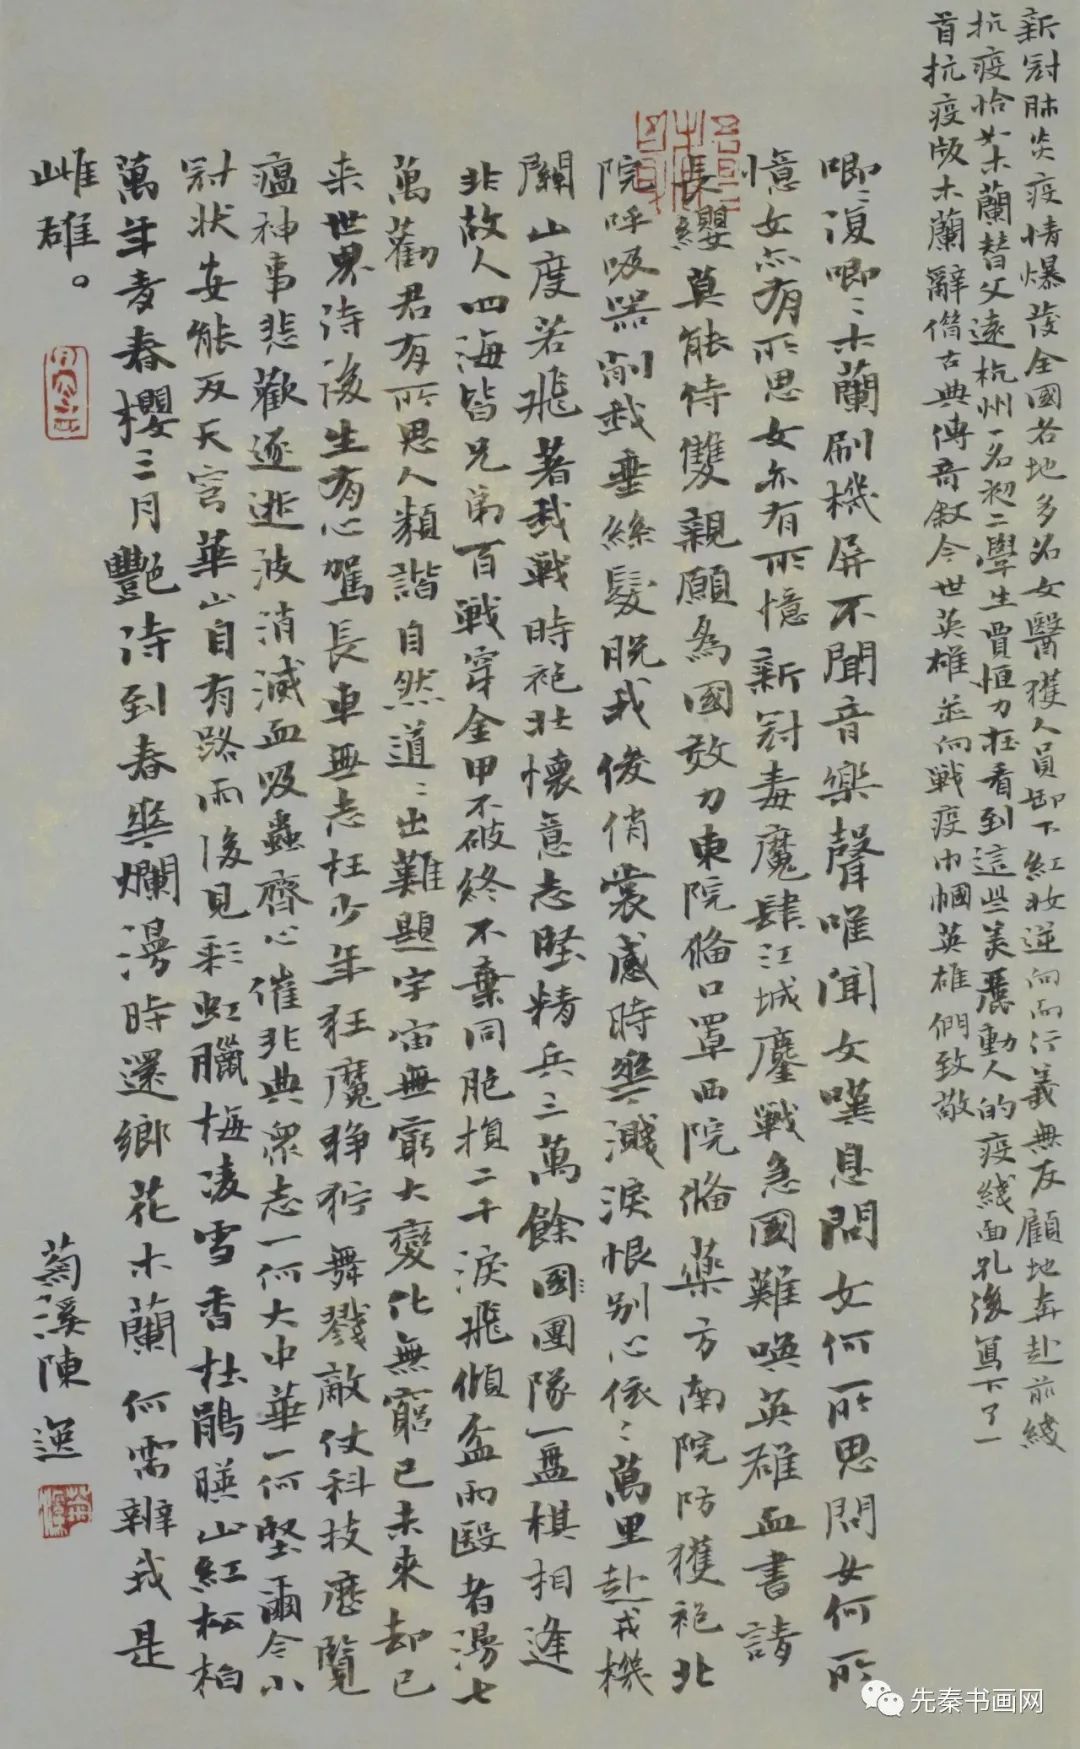 新冠肺炎疫情爆發全國各地多名女醫獲人員卸下紅妝逆向而行義無反顧地奔赴前綫
抗疫恰如木蘭替父遠杭州一名初二學生賈恒力在看到這些美麗動人的疫綫面孔後寫下了一
首抗疫版木蘭辭借古典傳奇叙今世英雄並向戰疫巾幗英雄們致敬
唧〻復唧〻木蘭刷機屏不聞音樂聲唯聞女嘆息問女何所思問女何所
憶女亦有所思女亦有所憶新冠毒魔肆江城鏖戰急國難喚英雄血書請
長纓莫能待雙親願為國效力東院備口罩西院備藥方南院防獲袍北
院呼吸器剃我垂絲髮脫我俊俏裳感時花濺淚恨別心依〻萬里赴戎機
關山度若飛著我戰時袍壯懷意志堅精兵三萬餘國團隊一盤棋相逢
非故人四海皆兄弟百戰穿金甲不破終不棄同胞損二千淚飛傾盆雨毉者漫七
萬勸君有所思人類諧自然道〻出難題宇宙無窮大變化無窮已未來却已
来世界待後生有心駕長車無志枉少年狂魔猙獰舞戮敵仗科技歷覽
瘟神事悲歡逐逝波消滅血吸蟲齊心催非典眾志一何大中華一何堅爾令小
冠狀安能反天穹華山自有路雨後見彩虹臘梅凌雪香杜鵑暎山紅松柏
萬年青春櫻三月艷待到春花爛漫時還鄉花木蘭何需辨我是
雌雄。
菊溪陳逸
先秦书画网